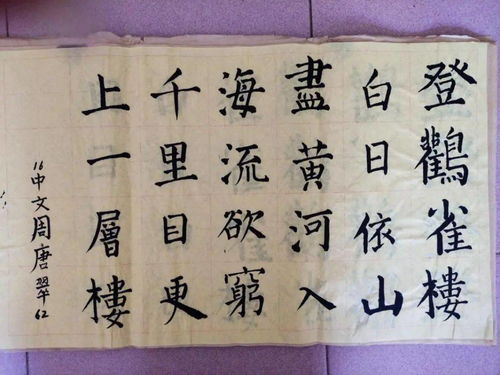 登鸛雀樓
白日依山
盡黃河入
海流欲窮
千里目更
上一層樓
16中文周唐翠62